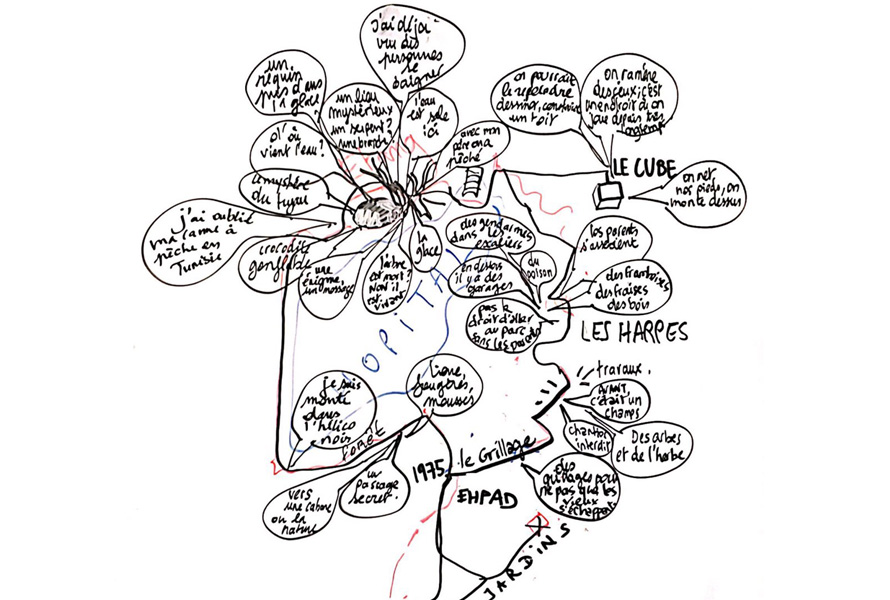 J'ai déjà
vu des
personnes
se
baigner
un
requin
pris dans
la glace
un lieu
mystérieux
un serpent?
une branche?
l'eau
est sale
ici
d'où
vient l'eau?
avec mon
père on a
pêché
le mystère
du tuyau
j'ai oublié
ma canne à
pêche en
Tunisie
crocodile
gonflable
une
énigme,
un message
l'arbre
est mort?
NON il
est vivant
la
glace
on pourrait
le repeindre
dessiner, construire
un toit
on ramène
des jeux, c'est
un endroit où on
joue depuis très
longtemps
LE CUBE
on met
nos pieds, on
monte dessus
des gendarmes
dans les
escaliers
du
poison
en dessous
il y a des
garages
pas le
droit d'aller
au parc
sans les parents
les parents
s'assoient
des framboises
des fraises
des bois
LES HARPES
HOPITAL
travaux.
AVANT,
c'était un
champs
chantier
interdit
Des arbres
et de l'herbe
je suis
monté
dans
l'hélico
noir
liane,
fougères,
mousses
forêt
un
passage
secret.
vers
une cabane
ou la
nature
1975
le Grillage
EHPAD
des
grillages pour
ne pas que les
vieux
s'échappent
JARDINS